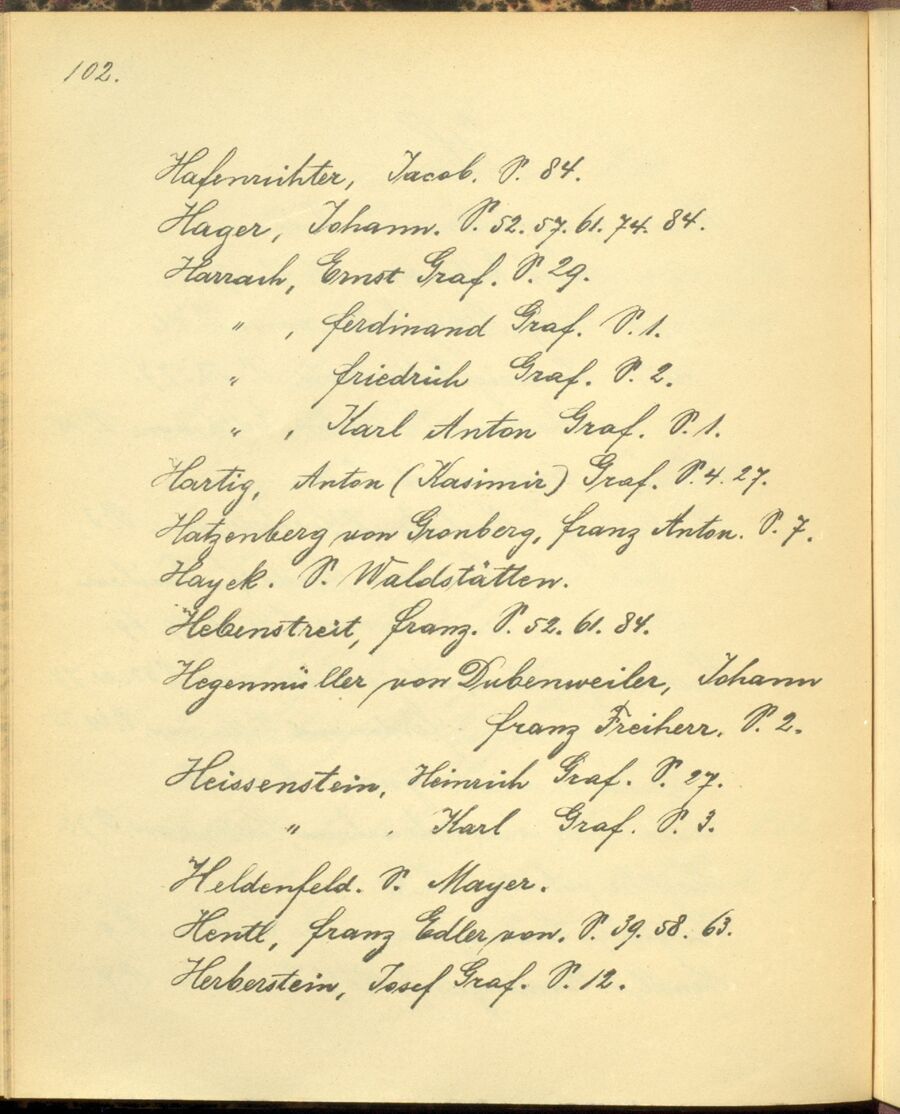 102.
Hafenrichter, Jacob. S. 84.
Hager, Johann. S. 52. 57. 61. 74. 84.
Harrach, Ernst Graf. S. 29.
" , Ferdinand Graf. S. 1.
" Friedrich Graf. S. 2.
" , Karl Anton Graf. S. 1.
Hartig, Anton (Kasimir) Graf. S. 4. 27.
Hatzenberg von Gronberg, Franz Anton. S. 7.
Hayek. S. Waldstätten.
Hebenstreit, Franz. S. 52. 61. 84.
Hegenmüller von Dubenweiler, Johann
Franz Freiherr. S. 2.
Heissenstein, Heinrich Graf. S. 27.
" , Karl Graf. S. 3.
Heldenfeld. S. Mayer.
Hentl, Franz Edler von. S. 39. 58. 63.
Herberstein, Josef Graf. S. 12.